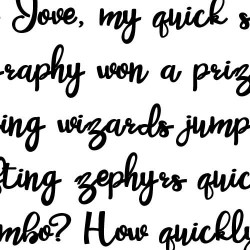 Jove, my quick s
raphy won a priz
ing wizards jump
ting zephyrs quic
mbo? How quickly